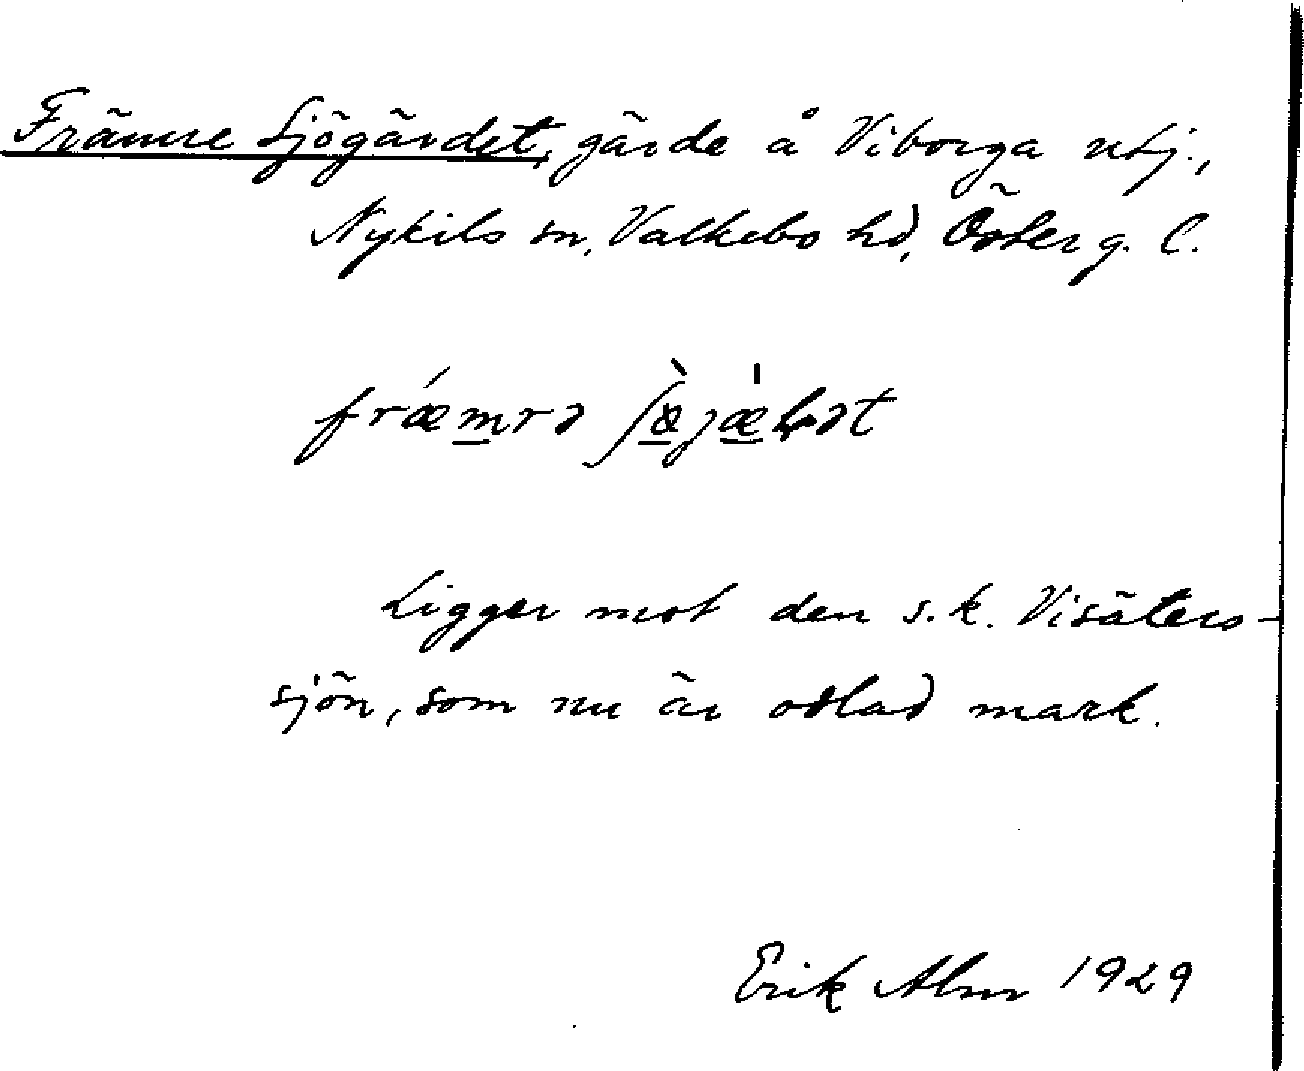 Främre Sjögärdet, gärde å Viborga utj.,
Nykils sn, Valkebo hd, Österg. l.
Ligger mot den s.k. Visäters-
sjön, som nu är odlad mark.
Erik Alm 1929